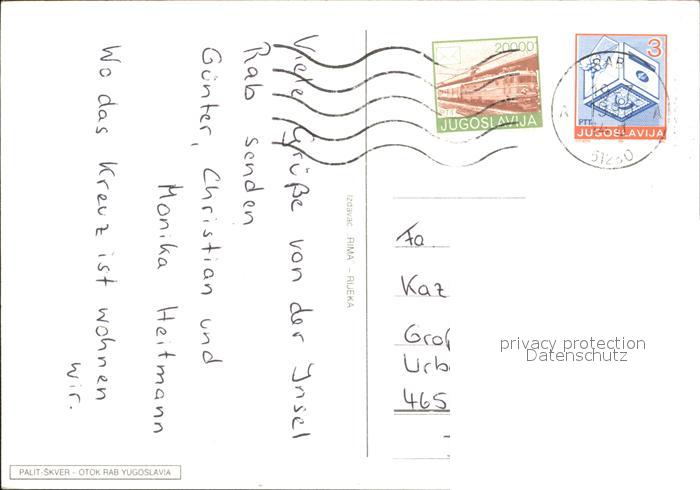 Viele Grüße von der Insel
Rab senden
Günter, Christian und
Monika Heitmann
Wo das Kreuz ist wohnen
wir.
Izdavač "RIMA" – RIJEKA
PALIT-ŠKVER - OTOK RAB YUGOSLAVIA
20000
PTT
JUGOSLAVIJA
3
PTT
JUGOSLAVIJA
RAB
A
51280
Fa.
Kaz
Groß
Urb
465
privacy protection
Datenschutz